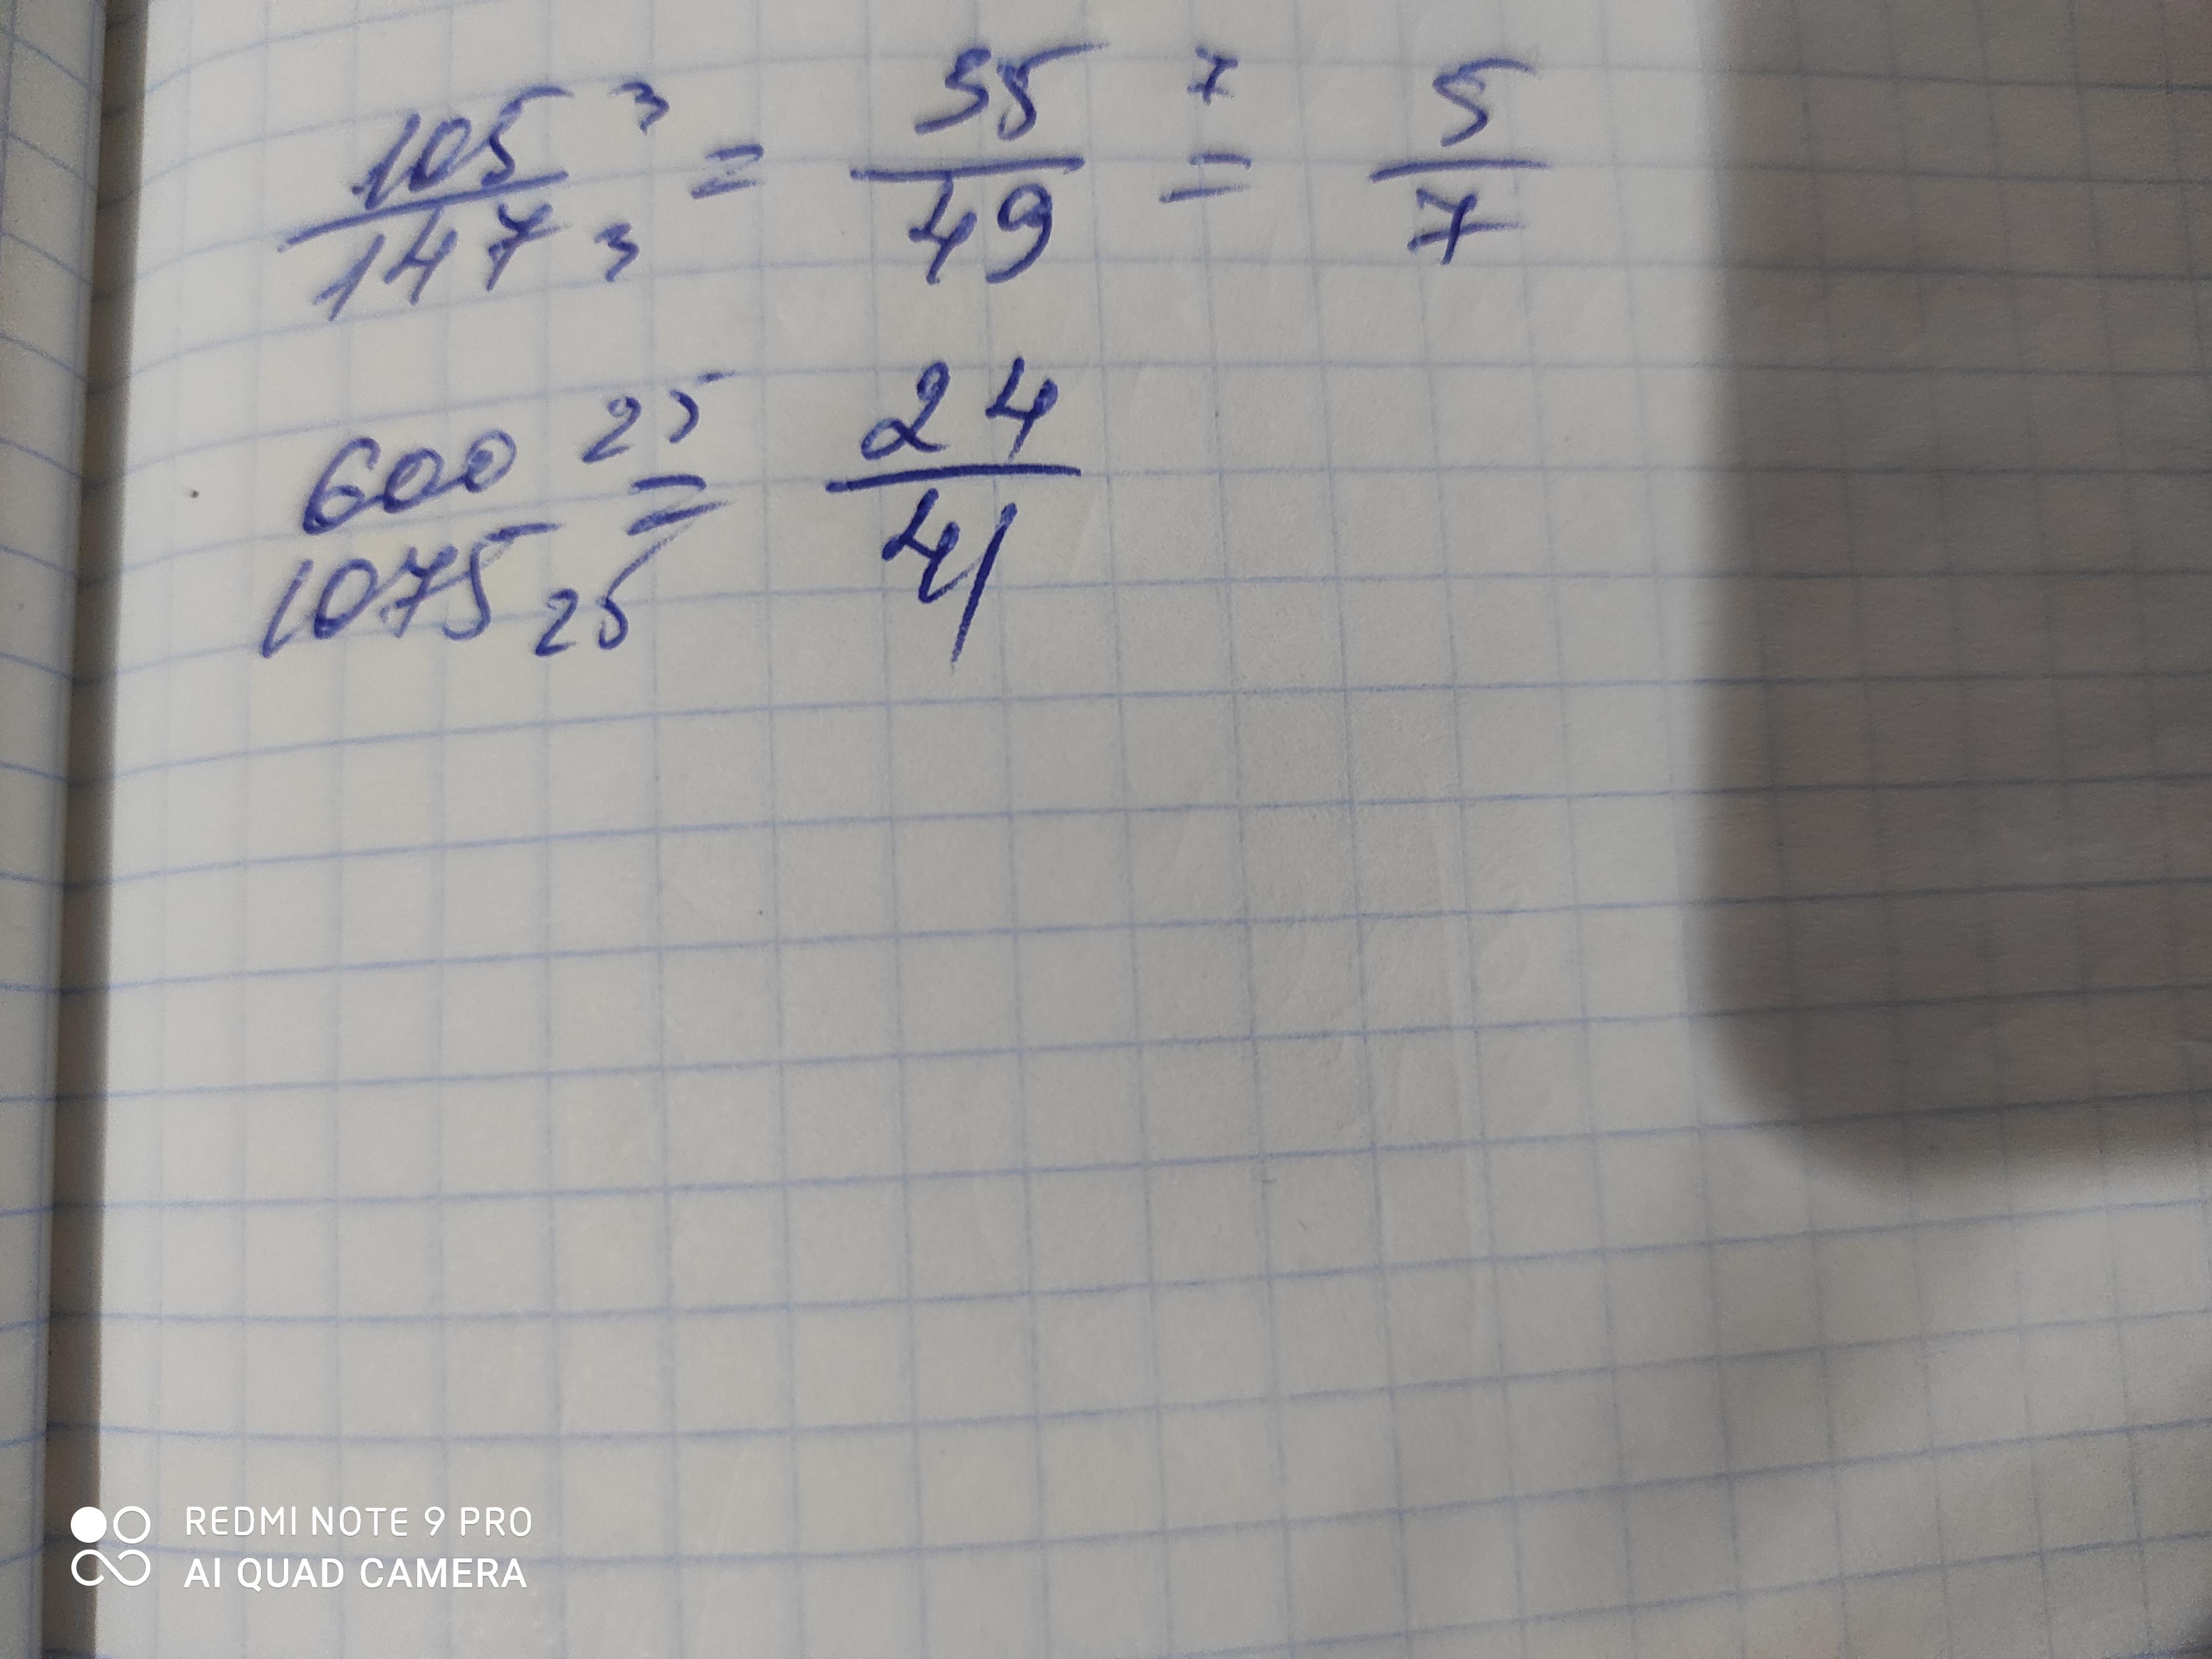 105 3 = 35 7 = 5
147 3 49 7
600 25 = 24
1075 25 41
REDMI NOTE 9 PRO
AI QUAD CAMERA